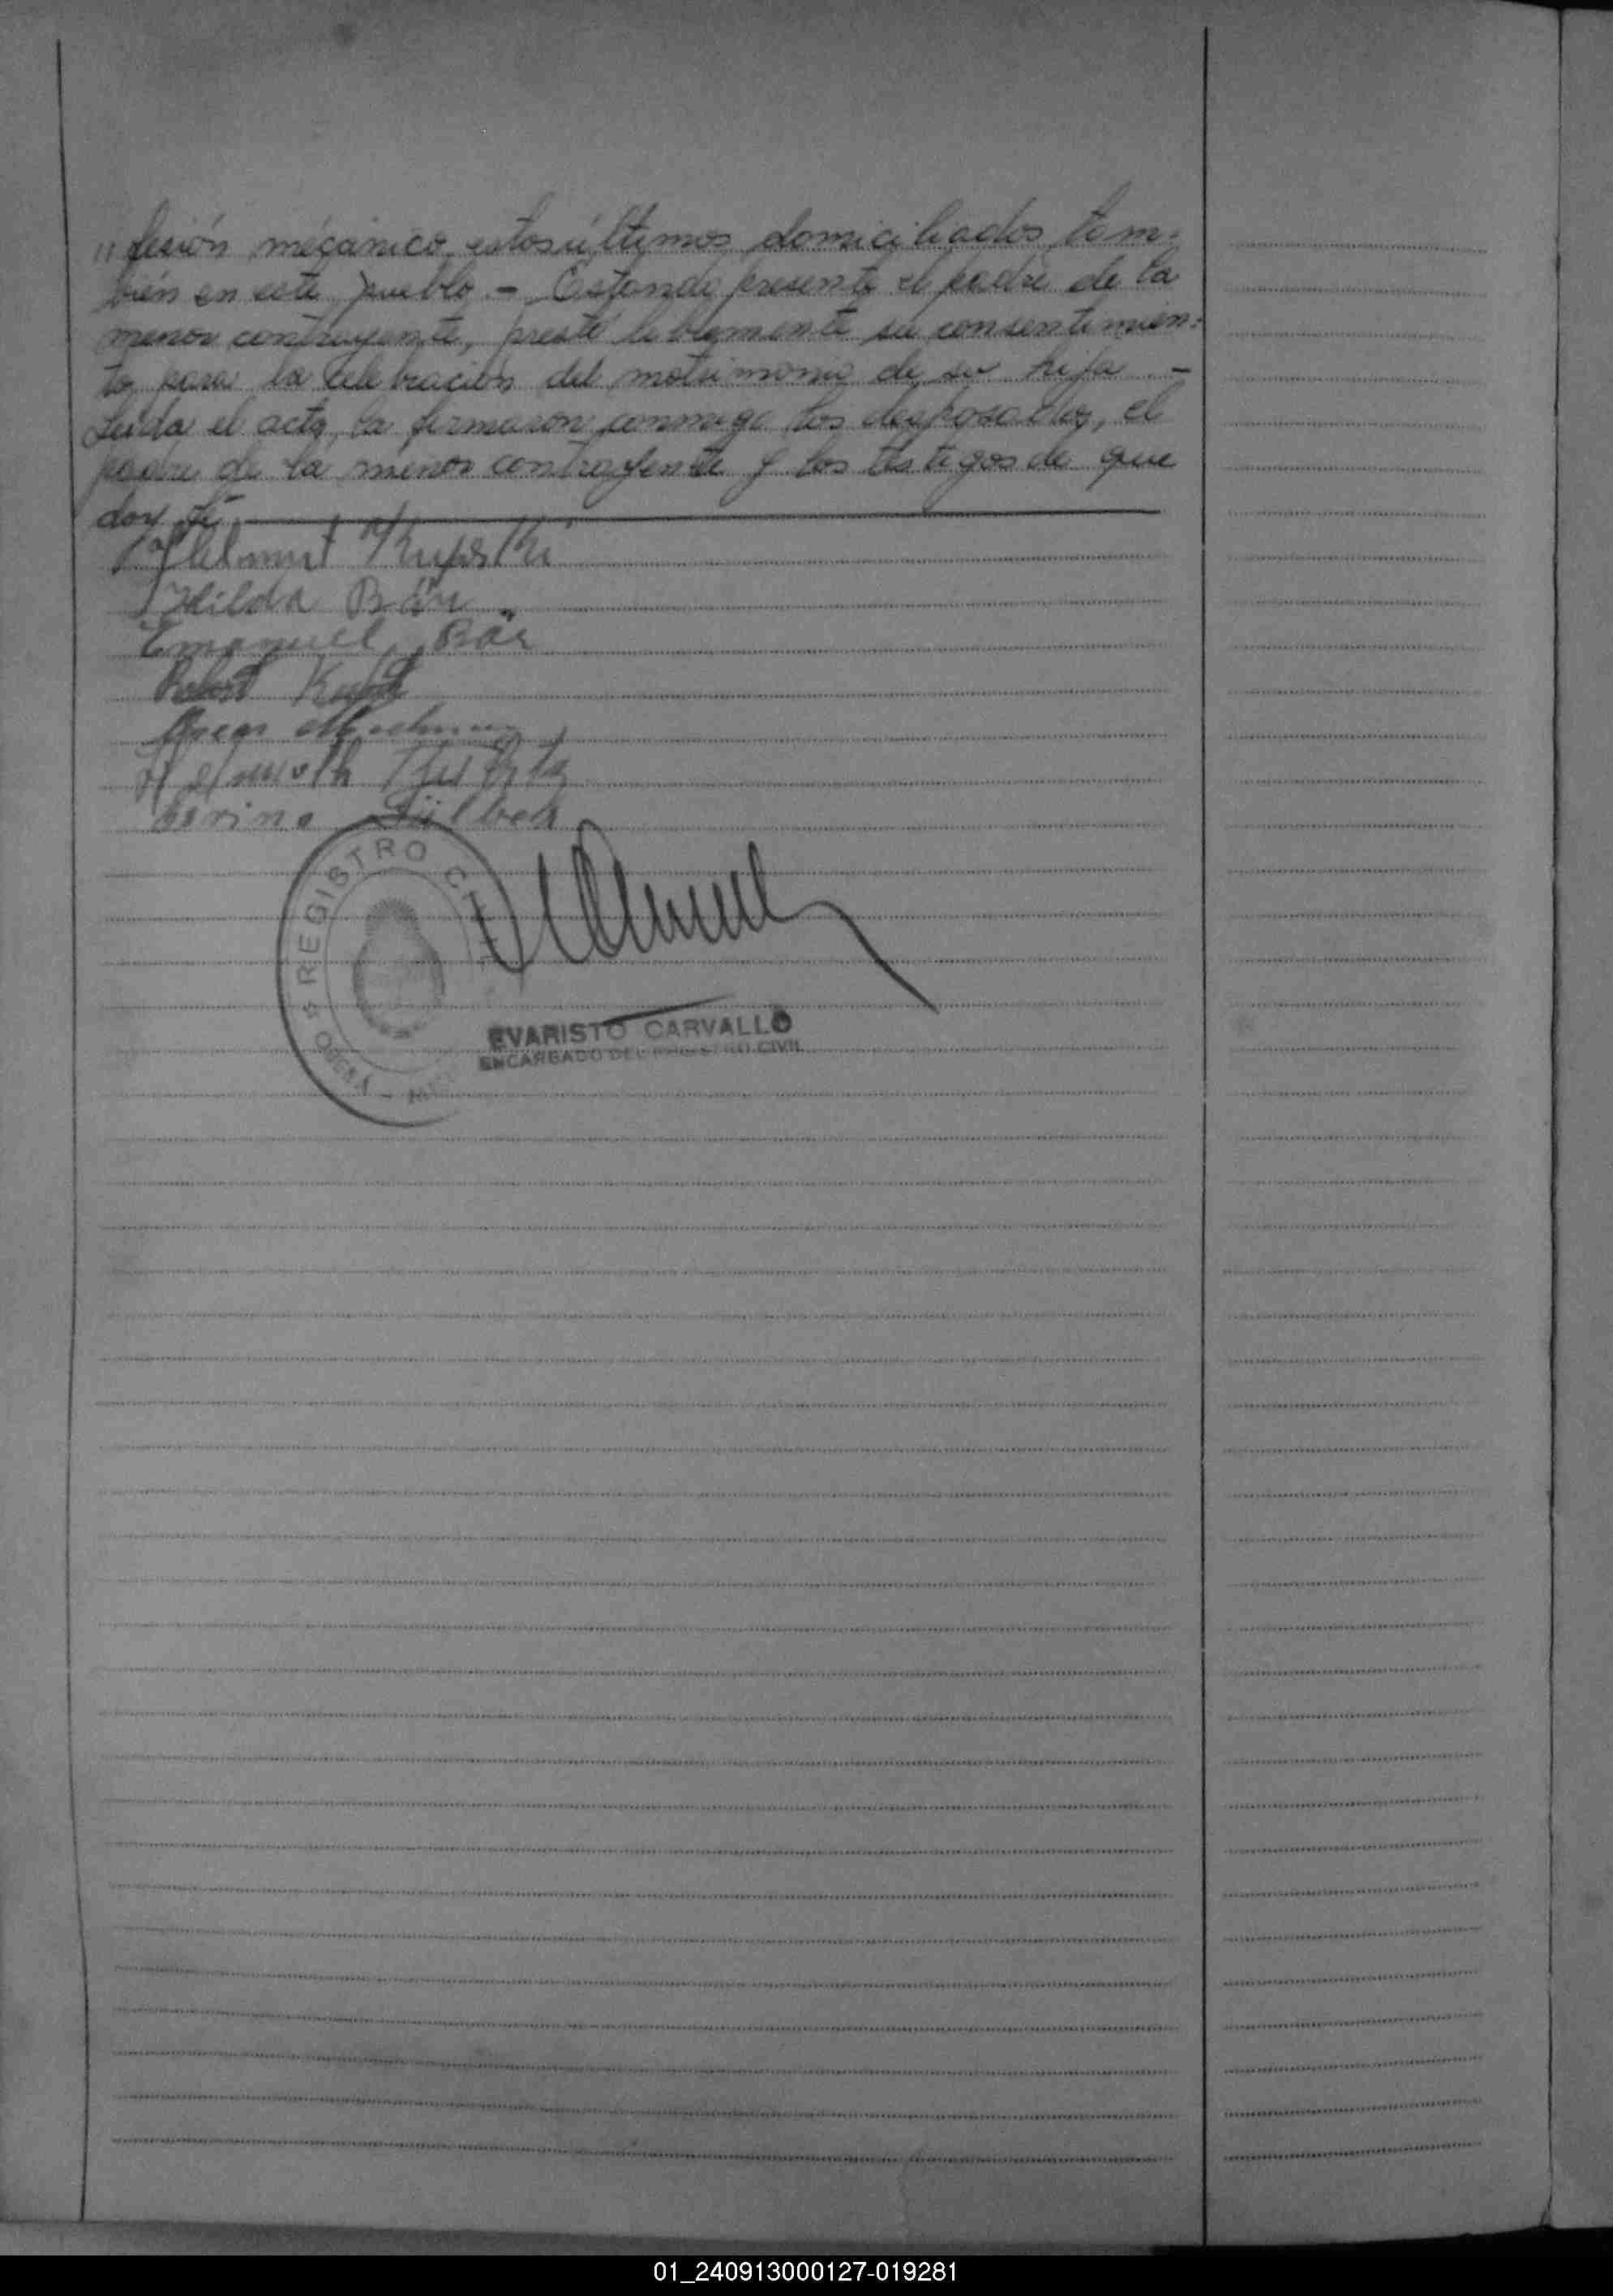 "fesión mecánico, estos últimos domiciliados tam-
bién en este pueblo.- Estando presente el padre de la
menor contrayente, prestó libremente su consentimien-
to para la celebración del matrimonio de su hija.-
Leida el acta, la firmaron conmigo los desposados, el
padre de la menor contrayente y los testigos de que
doy fé.
Helmut
Hilda Bär
Emanuel Bär
Robert
Helmuth
REGISTRO CIVIL
EVARISTO CARVALLO
ENCARGADO DEL REGISTRO CIVIL
01_240913000127-019281